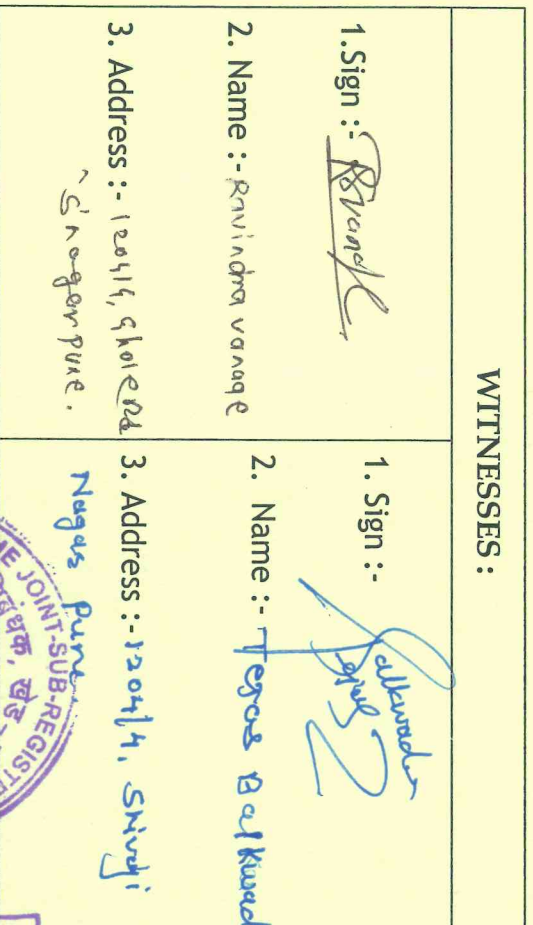 WITNESSES :
1.Sign :-
2. Name :- Ravindra vanage
3. Address :- 1204/4, Ghole Rd
S'nagar pune.
1. Sign :- Balkwade
Tejas
2. Name :- Tejas Balkwad
3. Address :- 1204/4, Shivaji
Nagar Pune.
E JOINT-SUB-REGISTR
बंधक, खेड